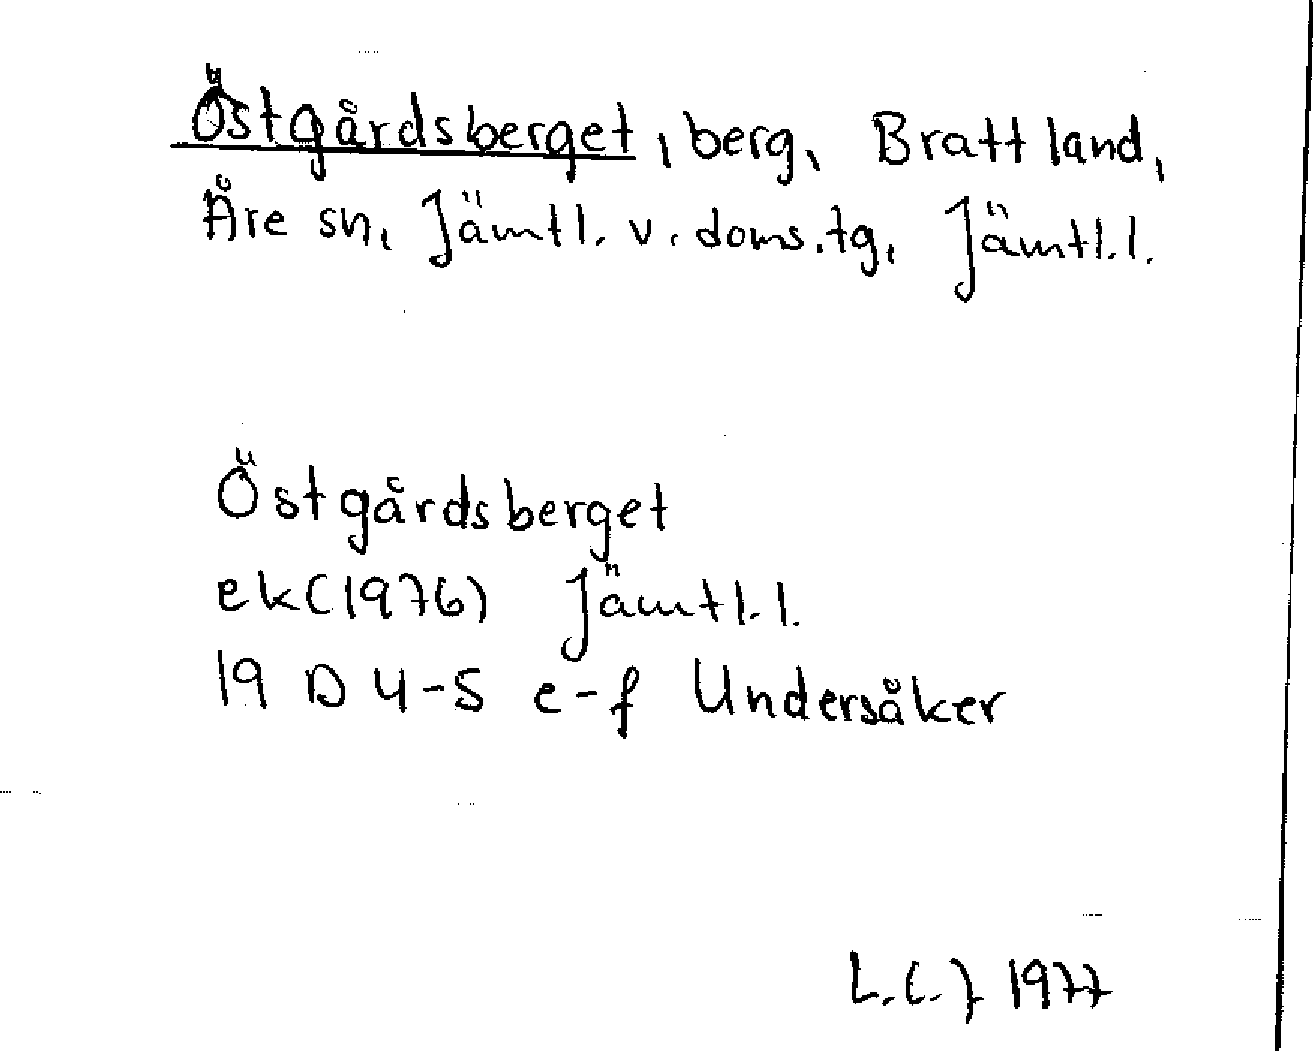 Östgårdsberget, berg, Brattland,
Åre sn, Jämtl. v. doms.tg, Jämtl.l.
Östgårdsberget
ek(1976) Jämtl.l.
19 D 4-5 e-f Undersåker
1977